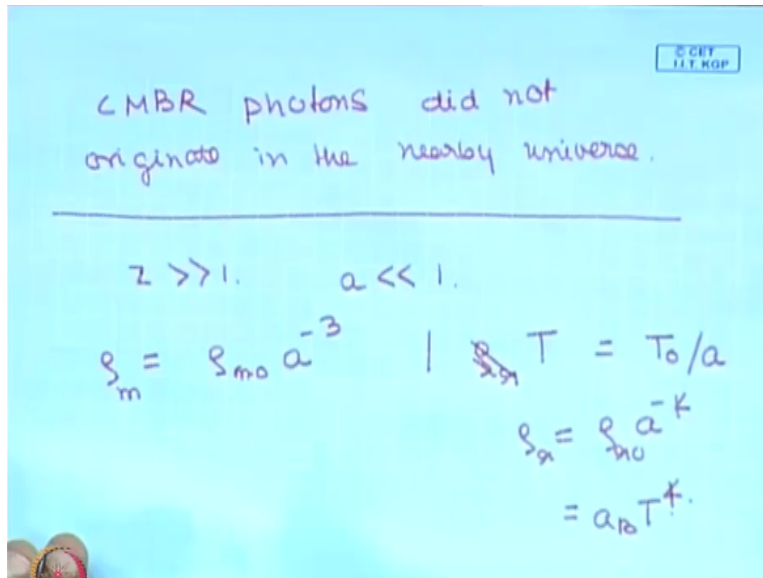 © CET
I.I.T. KGP
CMBR photons did not
originate in the nearby universe.
z >> 1. a << 1.
ρ_m = ρ_m0 a^-3 | T = T_0/a
ρ_r = ρ_r0 a^-4
= a_B T^4.